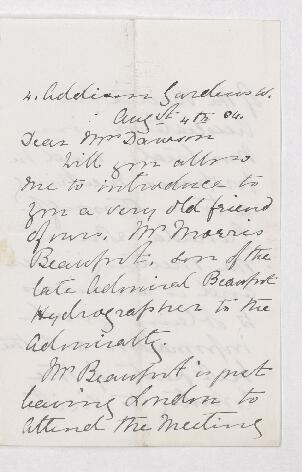 4. Addison Gardens W.
Augst 4th 04.
Dear Mrs Dawson
Will you allow
me to introduce to
you a very old friend
of ours. Mr Morris
Beaufort, son of the
late Admiral Beaufort
Hydrographer to the
Admiralty.
Mr Beaufort is just
leaving London to
attend the Meeting